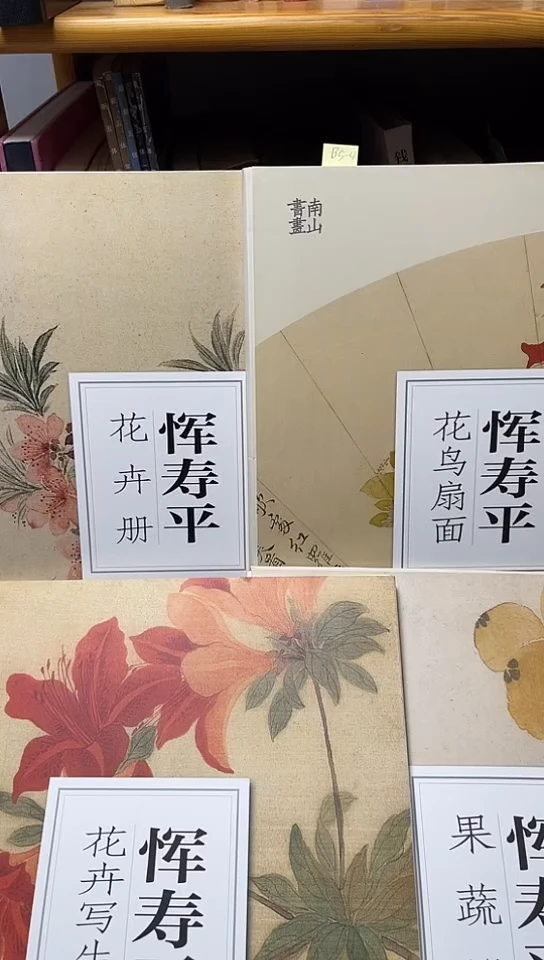 钱
B5-4
南山
書畫
恽寿平
花卉册
恽寿平
花鸟扇面
恽寿
花卉写生
恽寿
果蔬